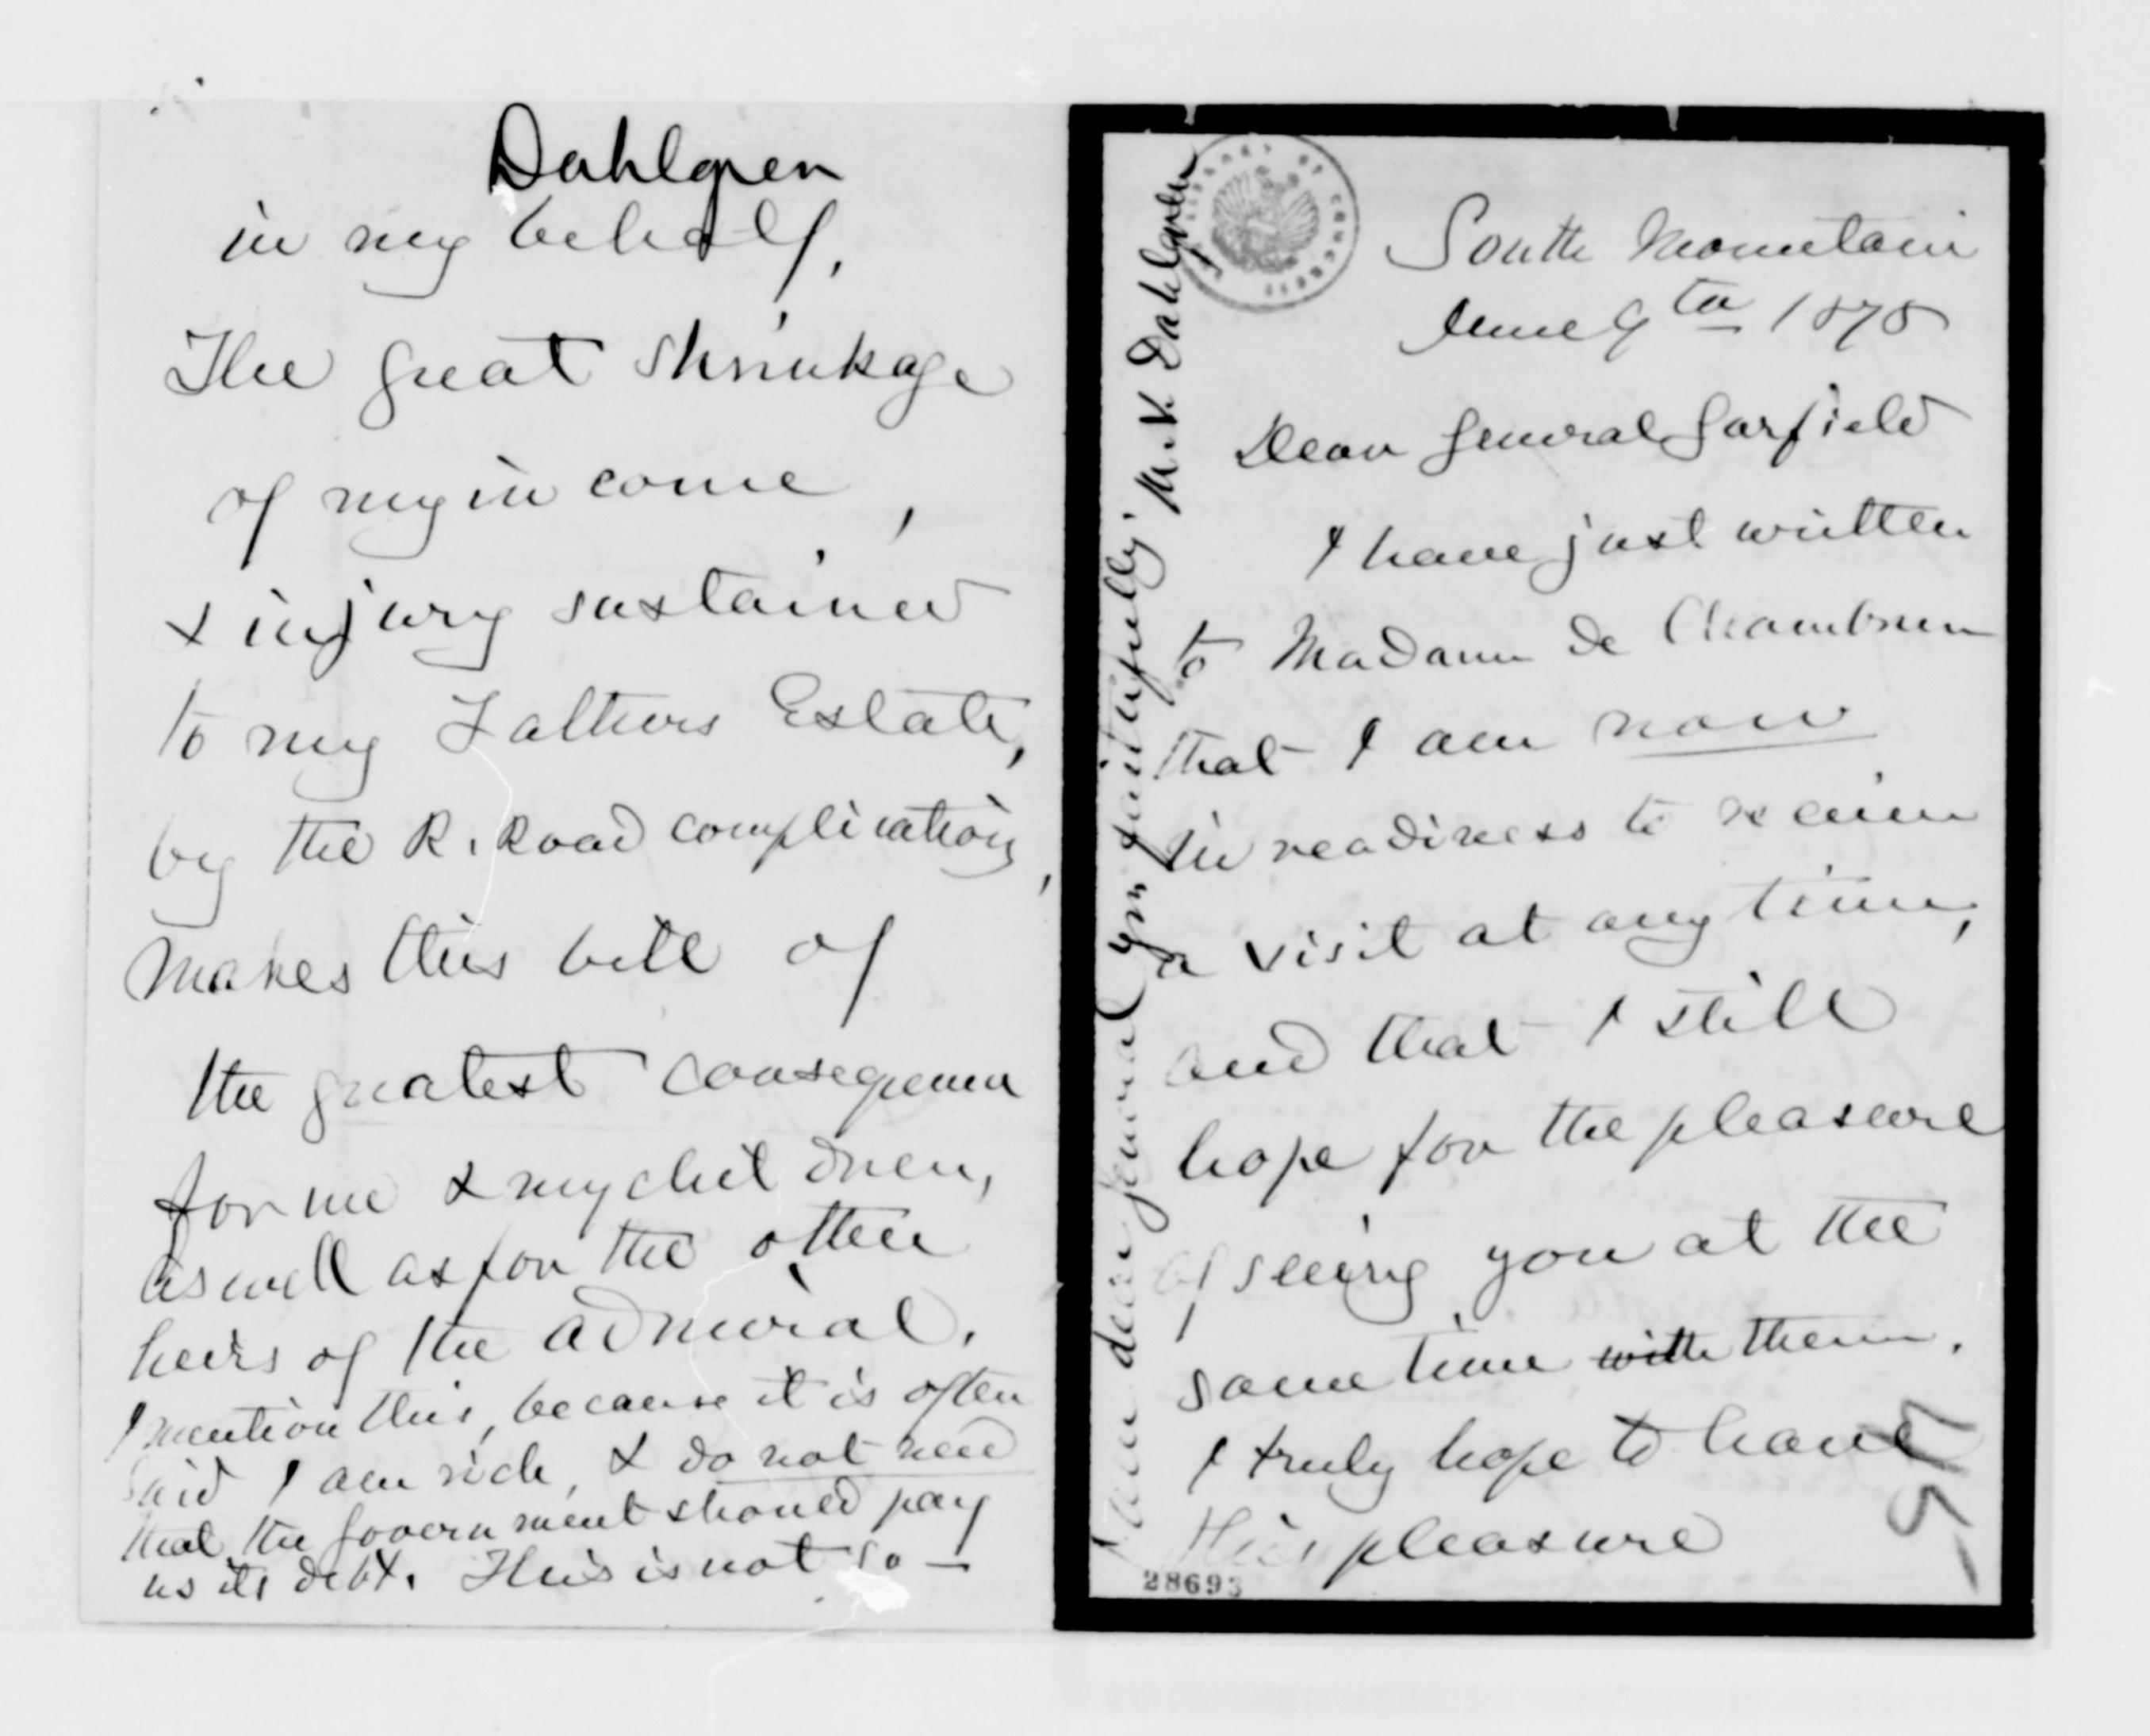 Dahlgren
in my behalf,
The great shrinkage
of my in come,
& injury sustained
to my Fathers Estate,
by the R. Road complications,
makes this bill of
the greatest consequence
for me & my chil dren,
as well as for the other
heirs of the Admiral.
I mention this, because it is often
said I am rich, & do not need
that the Government should pay
us its debt. This is not so —
South Mountain
June 9th 1878
Dear General Garfield
I have just written
to Madame de Chambrun
that I am now
in readiness to receive
a visit at any time,
and that I still
hope for the pleasure
of seeing you at the
same time with them.
I truly hope to have
this pleasure
28693
45
dear General yrs faithfully M. V. Dahlgren